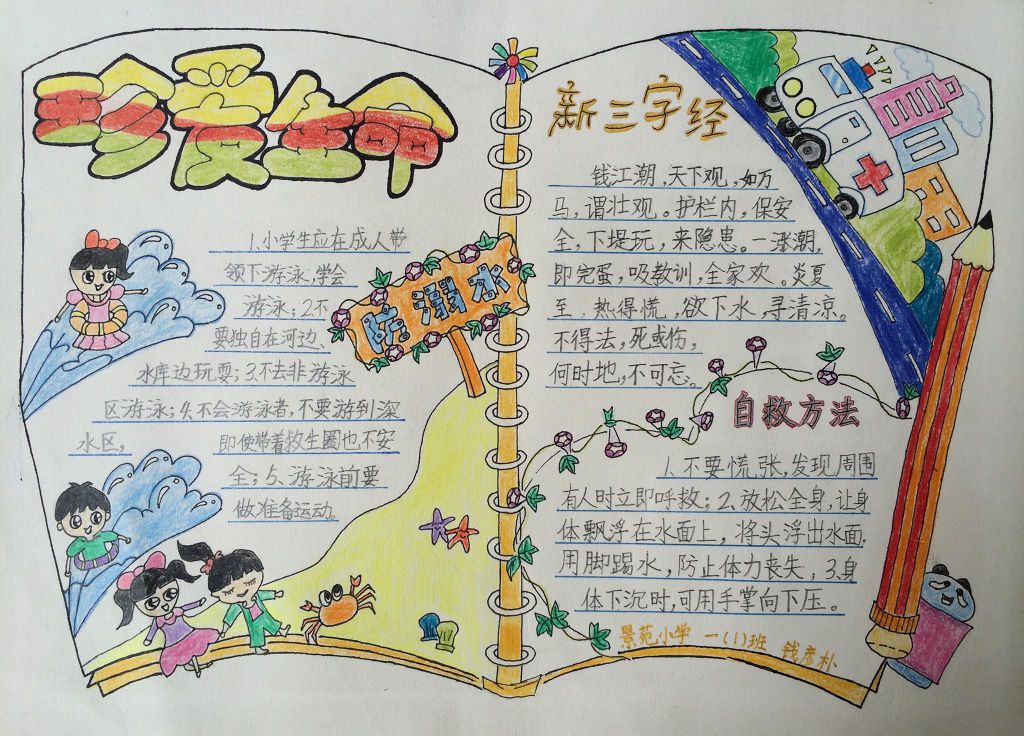 珍爱生命
1.小学生应在成人带
领下游泳,学会
游泳;2.不
要独自在河边、
水库边玩耍;3.不去非游泳
区游泳;4.不会游泳者,不要游到深
水区,即使带着救生圈也不安
全;5、游泳前要
做准备运动。
防溺水
新三字经
钱江潮,天下观,如万
马,谓壮观。护栏内,保安
全,下堤玩,来隐患。一涨潮,
即完蛋,吸教训,全家欢。炎夏
至,热得慌,欲下水,寻清凉。
不得法,死或伤,
何时地,不可忘。
自救方法
1.不要慌张,发现周围
有人时立即呼救;2.放松全身,让身
体飘浮在水面上,将头浮出水面,
用脚踢水,防止体力丧失,3.身
体下沉时,可用手掌向下压。
景苑小学 一(1)班 钱彦朴